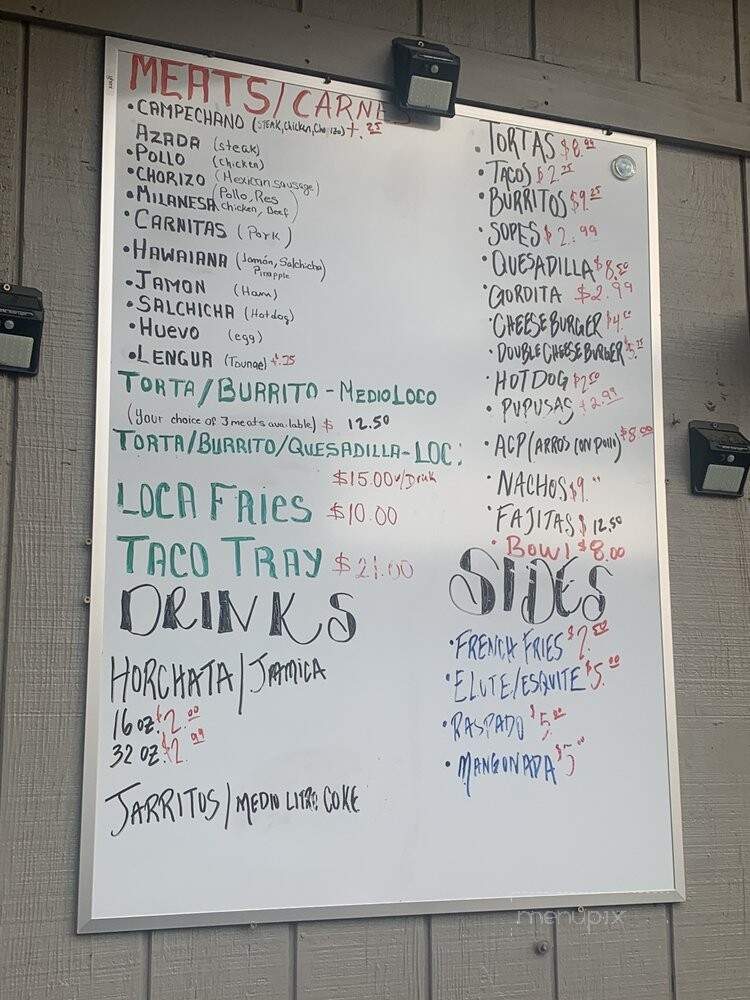 MEATS/CARNE
•CAMPECHANO (STEAK, Chicken, Chorizo) +.25
AZADA (steak)
•POLLO (chicken)
•CHORIZO (Mexican sausage)
•MILANESA (Pollo, Res Chicken, Beef)
•CARNITAS (Pork)
•HAWAIANA (Jamón, Salchicha Pineapple
•JAMON (Ham)
•SALCHICHA (Hotdog)
•HUEVO (egg)
•LENGUA (Tounge) +.25
TORTA/BURRITO-MEDIO LOCO
(Your choice of 3 meats available) $ 12.50
TORTA/BURRITO/QUESADILLA-LOC:
$15.00 w/Drink
LOCA FRIES $10.00
TACO TRAY $21.00
DRINKS
HORCHATA/JAMICA
16 oz $2.00
32 oz $2.99
JARRITOS/MEDIO LITRO COKE
•TORTAS $8.99
•TACOS $2.25
•BURRITOS $9.25
•SOPES $2.99
•QUESADILLA $8.50
•GORDITA $2.99
•CHEESEBURGER $4.
•DOUBLE CHEESE BURGER $5.
•HOT DOG $2.50
•PUPUSAS $2.99
•ACP (ARROS CON POLLO) $8.00
•NACHOS $9.
•FAJITAS $12.50
•BOWL $8.00
SIDES
•FRENCH FRIES $2.50
•ELOTE/ESQUITE $5.00
•RASPADO $5.00
•MANGONADA $5.00
menupix